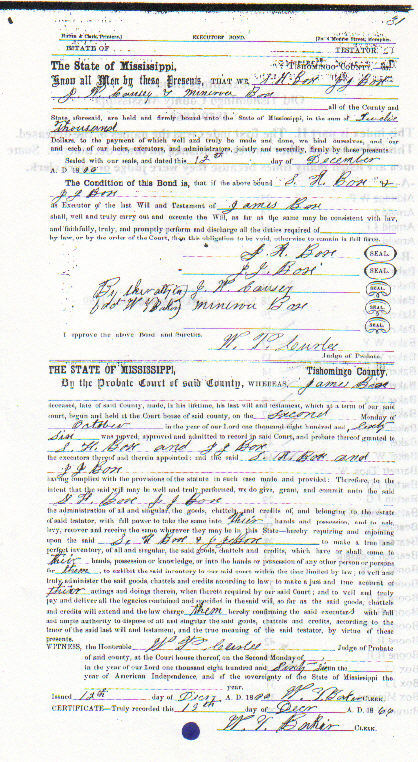 31
EXECUTORS' BOND.
ESTATE OF
TESTATOR
The State of Mississippi,
Tishomingo County,
Know all Men by these Presents, THAT WE
Minerva Box
all of the County and
State, aforesaid, are held and firmly bound unto the State of Mississippi, in the sum of Twelve
thousand
Dollars, to the payment of which well and truly be made and done, we bind ourselves, and our
and each of our heirs, executors, and administrators, jointly and severally, firmly by these presents.
Sealed with our seals, and dated this 12th day of December
A. D. 1866
The Condition of this Bond is, that if the above bound S. H. Box &
J J Box
as Executor of the last Will and Testament of James Box
shall, well and truly carry out and execute the Will, as far as the same may be consistent with law,
and faithfully, truly, and promptly perform and discharge all the duties required of
by law, or by the order of the Court, then this obligation to be void, otherwise to remain in full force.
S. H. Box SEAL.
J. J. Box SEAL.
By their atty in J. W. Causey SEAL.
fact W. T. Baker Minerva Box SEAL.
SEAL.
I approve the above Bond and Sureties.
Judge of Probate.
THE STATE OF MISSISSIPPI, Tishomingo County,
By the Probate Court of said County, WHEREAS, James Box
deceased, late of said County, made, in his lifetime, his last will and testament, which at a term of our said
court, begun and held at the Court house of said county, on the Second Monday of
October in the year of our Lord one thousand eight hundred and Sixty
Six was proved, approved and admitted to record in said Court, and probate thereof granted to
S. H. Box and J J Box
the executors thereof and therein appointed: and the said S. H. Box and
J J Box
having complied with the provisions of the statute in such case made and provided: Therefore, to the
intent that the said will may be well and truly performed, we do give, grant, and commit unto the said
S H. Box J J Box
the administration of all and singular, the goods, chattels and credits, of, and belonging to the estate
of said testator, with full power to take the same into their hands and possession, and to sale,
levy, recover and receive the same wherever they may be in this State—hereby requiring and enjoining
upon the said S. H Box & J J Box to make a true and
perfect inventory, of all and singular, the said goods, chattels and credits, which have or shall come to
their hands, possession or knowledge, or into the hands or possession of any other person or persons
them, to exhibit the said inventory to our said court within the time limited by law; to well and
truly administer the said goods, chattels and credits according to law, to make a just and true account of
their actings and doings therein, when thereto required by our said Court; and to well and truly
pay and deliver all the legacies contained and specified in the said will, so far as the said goods, chattels
and credits will extend and the law charge them hereby confirming the said executors with full
and ample authority to dispose of all and singular the said goods, chattels and credits, according to the
tenor of the said last will and testament, and the true meaning of the said testator, by virtue of these
presents.
WITNESS, the Honorable Judge of Probate
of said county, at the Court house thereof, on the Second Monday of
in the year of our Lord one thousand eight hundred and Sixty Six in the
year of American Independence, and of the sovereignty of the State of Mississippi the
year.
Issued 12th day of Decr A. D. 1866 W. T. Baker CLERK.
CERTIFICATE—Truly recorded this 12th day of Decr A. D. 1866
W. T. Baker CLERK.